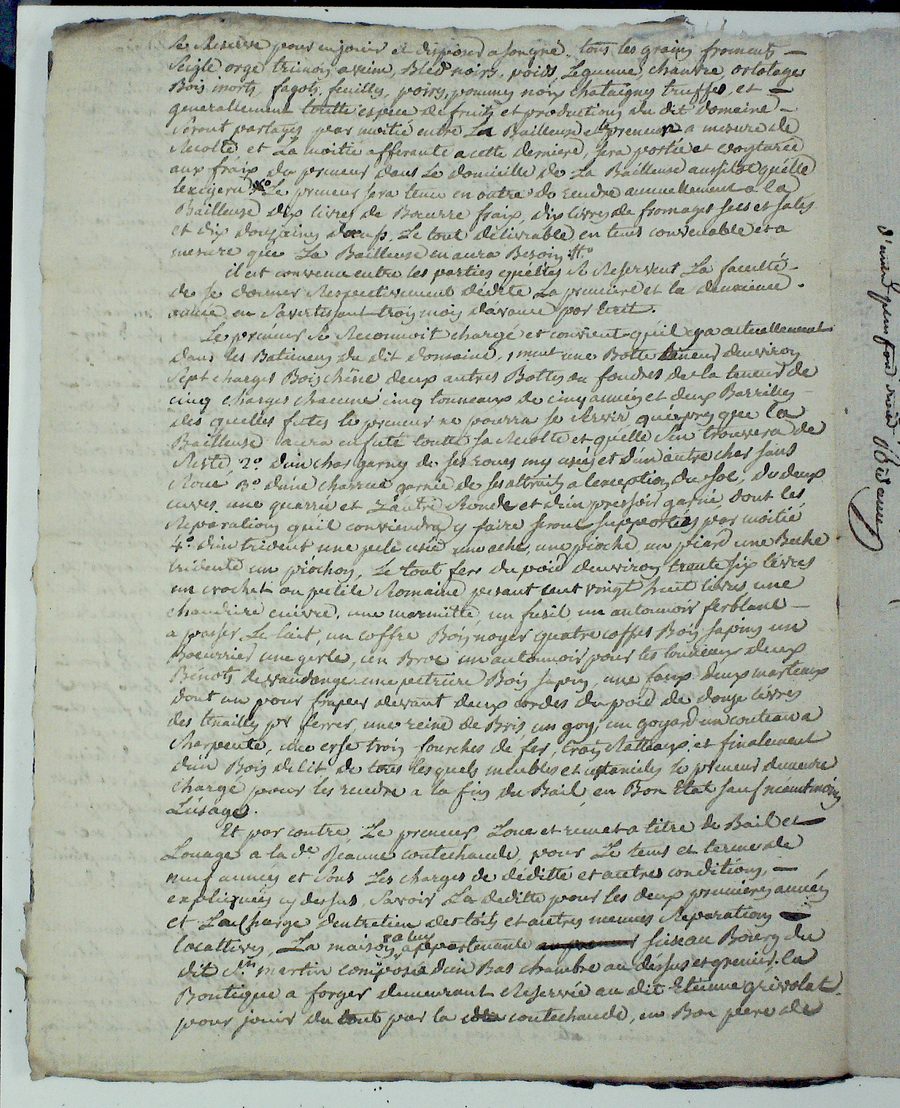 Se Reserve pour en jouir et disposer a son gré, tous les grains froments
Seigle, orge tremois aveine, Bled noirs, poids, Legumme, chanvre, ortolage
Bois morts, fagots, feuilles, poires, pommes noix chataignes truffes, et
generallement toutte espece de fruits et productions du dit domaine
Seront partagés par moitié entre La Bailleuse et preneur a mesure de
Recolte et La moitié afferante a cette derniere, sera portée et voyturée
aux fraix du preneur dans Le domicille de La Bailleuse aussitot qu'elle
lexigera Le preneur sera tenu en outre de Rendre annuellement a la
Bailleuse dix livres de Bœurre fraix, dix livres de fromages secs et salés
et dix douzaines d'œufs, Le tout delivrable en tems convenable et a
mesure que La Bailleuse en aura Besoin
il est convenu entre les parties quelles se Reservent La faculté
de se donner Respectivement dédite La premiere et la deuxieme
année, en s'avertissant trois mois d'avance par Ecrit.
Le preneur se Reconnoit chargé et convient qu'il y a actuellement
dans les Batimens du dit domaine, 1ment une Botte teneur d'environ
sept charges Bois chêne deux autres Bottes ou foudres de la teneur de
cinq charges chacune cinq tonneaux de cinq années et deux Barrilles
des quelles futes le preneur ne pourra se servir qu'apres que la
Bailleuse aura enfuté toutte sa Recolte et qu'elle s'en trouvera de
Reste, 2.° d'un char garny de ses roues my usées et d'un autre char sans
Roue 3.° d'une charrue garnie de ses attraits a l'exception du soc, de deux
cuves, une quarrée et L'autre Ronde et d'un pressoir garni, dont les
Reparations qu'il conviendra y faire seront supportées par moitié
4.° d'un trident une pelle usée une ache, une pioche, un piard une Beche
tridente un piochon, Le tout fers du poid d'environ trente six livres
un crochet ou petite Romaine pesant cent vingt huit livres une
chaudiere cuivre, une marmitte, un fusil un antonnoir ferblanc
a passer Le lait, un coffre Bois noyer quatre coffres Bois sapins un
Bœurrier une gerle, un Broc un antonnoir pour les tonneaux deux
Bénots de vandange une petriere Bois sapin, une faux deux marteaux
dont un pour fraper devant deux cordes du poid de douze livres
des tenailles pr ferrer une reine de Bois, un goy, un goyard un couteau a
charpente, une erse trois fourches de fer, trois Rattaux, et finalement
d'un Bois de lit de tous lesquels meubles et ustanciles le preneur demeure
chargé pour les rendre a la fin du Bail, en Bon Etat sauf néantmoins
L'usage.
Et par contre Le preneur Loue et remet a titre de Bail et
Louage a la de Jeanne coutechaude, pour Le tems et terme de
neuf années et sous Les charges de deditte et autres conditions
expliquées cy dessus, savoir La deditte pour les deux premieres années
et La charge d'entretien des toits et autres menues Reparations
locattives, La maison a lui appartenante sise au Bourg du
dit St. martin composée d'un Bas chambre au dessus et grenier, la
Boutique a forger demeurant Reservée au dit Etienne grivolat
pour jouir du tout par la coutechaude, en Bon pere de